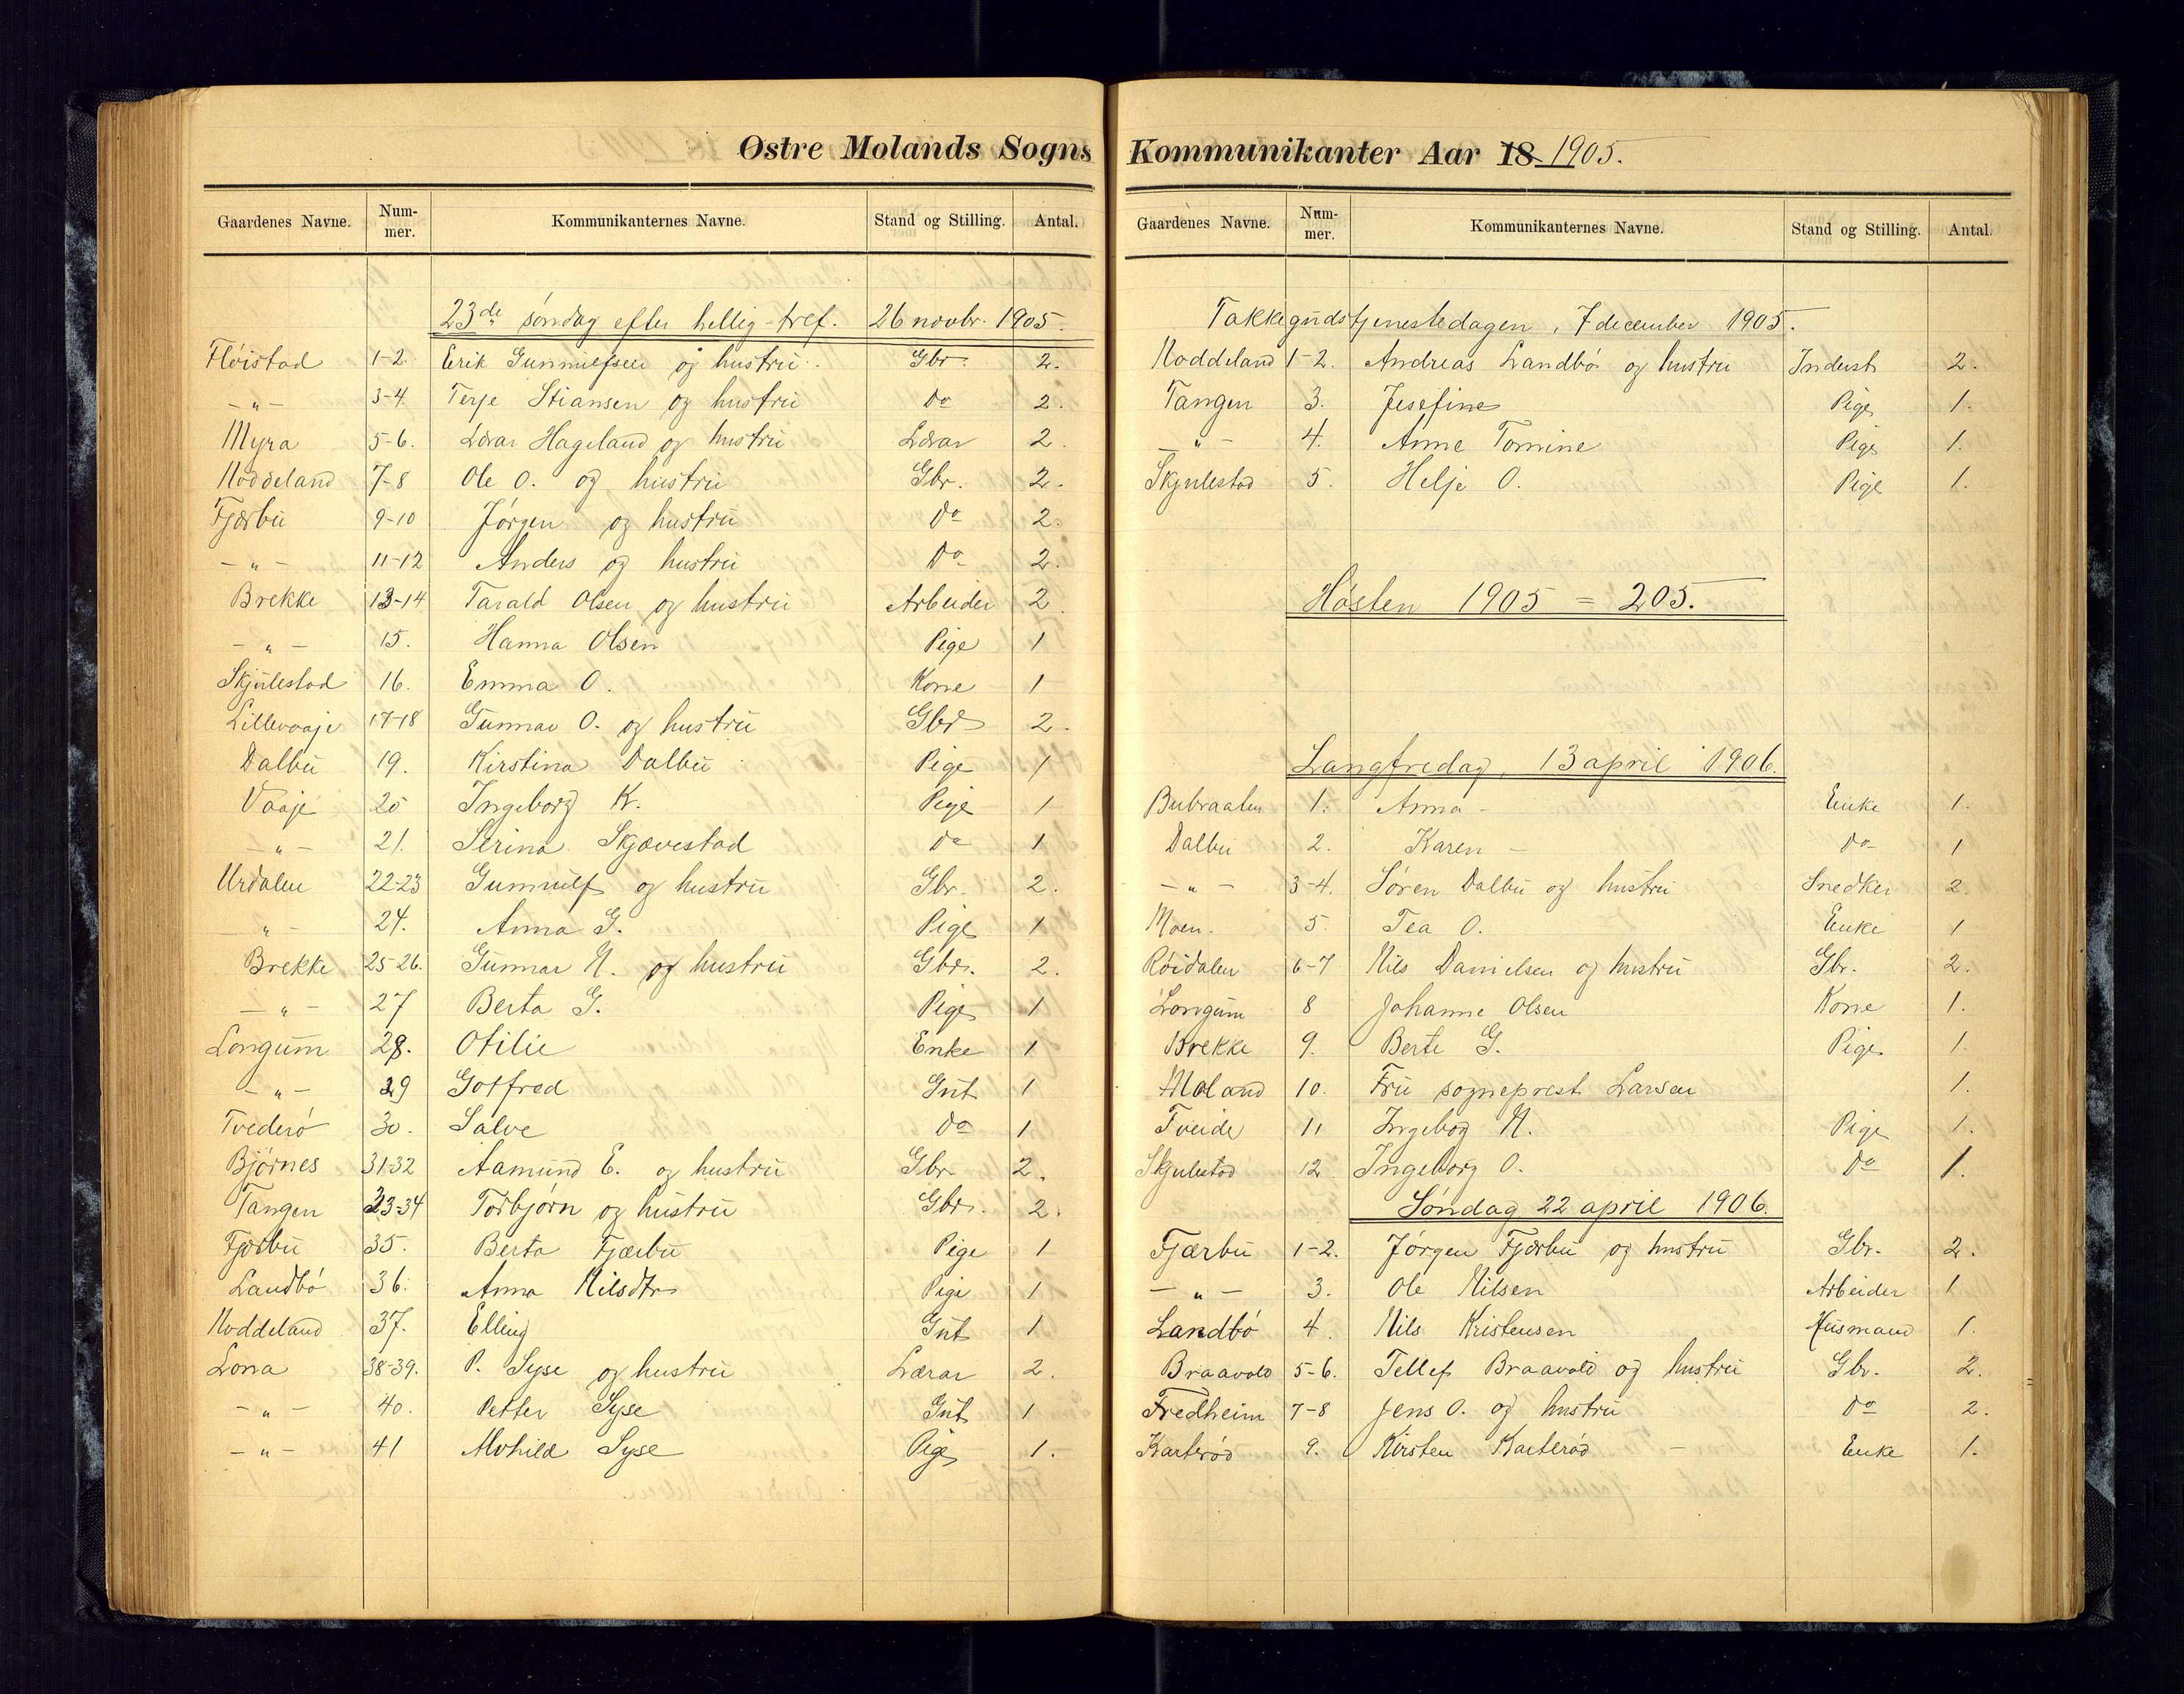 Østre Molands Sogns
Gaardenes Navne. Num-mer. Kommunikanternes Navne. Stand og Stilling. Antal.
23de søndag efter hellig-tref. 26 novbr. 1905.
Fløistad 1-2 Erik Gunnulfsen og hustru Gbr. 2.
— " — 3-4 Terje Stiansen og hustru Do 2.
Myra 5-6. Lærar Hageland og hustru Lærar 2.
Noddeland 7-8 Ole O. og hustru Gbr. 2.
Fjærbu 9-10 Jørgen og hustru Do 2.
— " — 11-12 Anders og hustru Do 2.
Brekke 13-14 Tarald Olsen og hustru Arbeider 2.
— " — 15. Hanna Olsen Pige 1
Skjulestad 16. Emma O. Kone 1
Lillevaaje 17-18 Gunnar O. og hustru Gbr 2.
Dalbu 19. Kirstina Dalbu Pige 1
Vaaje 20 Ingeborg K. Pige 1
— " — 21. Serina Skjævestad Do 1
Urdalen 22-23 Gunnulf og hustru Gbr. 2.
— " — 24. Anna G. Pige 1
Brekke 25-26. Gunnar N. og hustru Gbr. 2.
— " — 27 Berta G. Pige 1
Longum 28. Otilie Enke 1
— " — 29 Gotfred Gut 1
Tvederø 30. Salve Do 1
Bjørnes 31-32 Aamund E. og hustru Gbr. 2.
Tangen 33-34 Torbjørn og hustru Gbr. 2.
Fjærbu 35. Berta Fjærbu Pige 1
Landbø 36. Anna Nilsdtr Pige 1
Noddeland 37. Elling Gut 1
Lona 38-39. P. Syse og hustru Lærar 2.
— " — 40. Petter Syse Gut 1
— " — 41 Alvhild Syse Pige 1.
Kommunikanter Aar 18 1905.
Gaardenes Navne. Num-mer. Kommunikanternes Navne. Stand og Stilling. Antal.
Takkegudstjenestedagen, 7 december 1905.
Noddeland 1-2. Andreas Landbø og hustru Inderst 2.
Tangen 3. Jesefine Pige 1.
— " — 4. Anne Tomine Pige 1.
Skjulestad 5. Helje O. Pige 1.
Høsten 1905 = 205.
Langfredag, 13 april 1906.
Bubraaten 1. Anna - Enke 1.
Dalbu 2. Karen - Do 1
— " — 3-4. Søren Dalbu og hustru Snedker 2.
Moen. 5. Tea O. Enke 1
Røidalen 6-7 Nils Danielsen og hustru Gbr. 2.
Longum 8 Johanne Olsen Kone 1.
Brekke 9. Berte G. Pige 1.
Moland 10. Fru sogneprest Larsen 1.
Tveide 11 Ingebog N. Pige 1.
Skjulestad 12 Ingeborg O. Do 1.
Søndag 22 april 1906.
Fjærbu 1-2. Jørgen Fjærbu og hustru Gbr. 2.
— " — 3. Ole Nilsen Arbeider 1
Landbø 4. Nils Kristensen Husmand 1.
Braavold 5-6. Tellef Braavold og hustru Gbr. 2.
Fredheim 7-8 Jens O. og hustru Do 2.
Karterød 9. Kirsten Karterød - Enke 1.